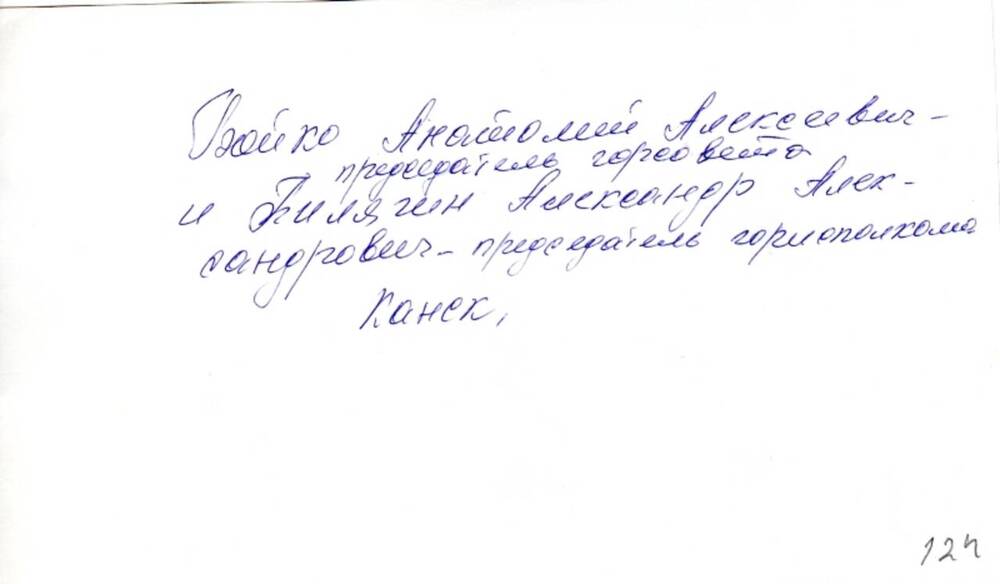 Бойко Анатолий Алексеевич –
председатель горсовета
и Билягин Александр Алек-
сандрович – председатель горисполкома
Канск,
124